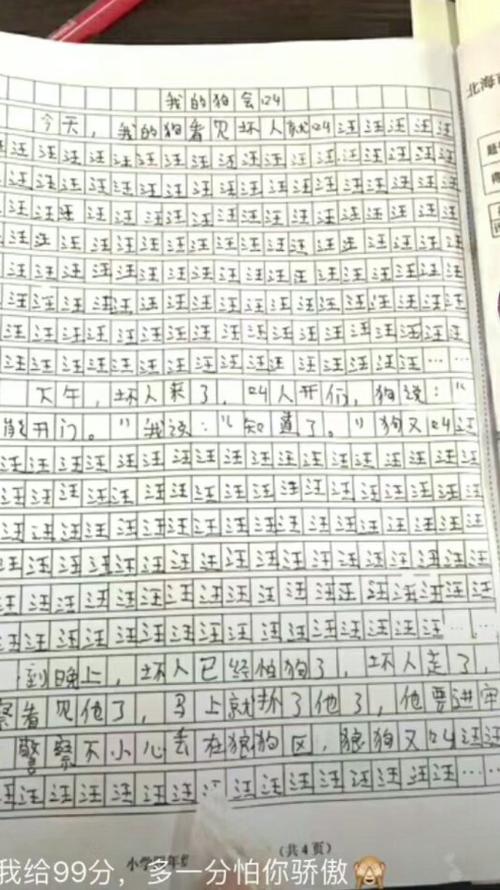 我的狗会叫
今天，我的狗看见坏人就叫汪汪汪汪汪
汪汪汪汪汪汪汪汪汪汪汪汪汪汪汪汪汪汪汪
汪汪汪汪汪汪汪汪汪汪汪汪汪汪汪汪汪汪汪
汪汪汪汪汪汪汪汪汪汪汪汪汪汪汪汪汪汪汪
汪汪汪汪汪汪汪汪汪汪汪汪汪汪汪汪汪汪汪
汪汪汪汪汪汪汪汪汪汪汪汪汪汪汪汪汪汪汪
汪汪汪汪汪汪汪汪汪汪汪汪汪汪汪汪汪汪汪
汪汪汪汪汪汪汪汪汪汪汪汪汪汪汪汪汪汪汪
汪汪汪汪汪汪汪汪汪汪汪汪汪汪汪汪汪……
下午，坏人来了，叫人开们，狗说：“
能开门。”我说：“知道了。”狗又叫汪
汪汪汪汪汪汪汪汪汪汪汪汪汪汪汪汪汪汪汪
汪汪汪汪汪汪汪汪汪汪汪汪汪汪汪汪汪汪汪
汪汪汪汪汪汪汪汪汪汪汪汪汪汪汪汪汪汪汪
汪汪汪汪汪汪汪汪汪汪汪汪汪汪汪汪汪汪汪
汪汪汪汪汪汪汪汪汪汪汪汪汪汪汪汪汪汪汪
汪汪汪汪汪汪汪汪汪汪汪汪汪汪汪汪汪……
到晚上，坏人已经怕狗了，坏人走了，
察看见他了，马上就抓了他了，他要进牢
警察不小心丢在狼狗区，狼狗又叫汪汪
汪汪汪汪汪汪汪汪汪汪汪汪汪汪汪汪汪……
（共4页）
北海
我给99分，多一分怕你骄傲🙈